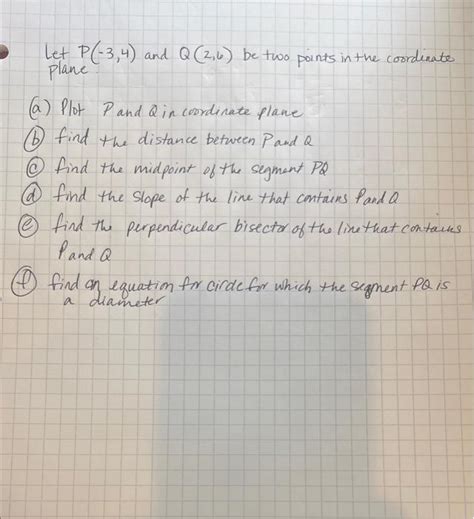 Let P(-3,4) and Q(2,6) be two points in the coordinate
plane:
(a) Plot P and Q in coordinate plane
(b) find the distance between P and Q
(c) find the midpoint of the segment PQ
(d) find the slope of the line that contains P and Q
(e) find the perpendicular bisector of the line that contains
P and Q
(f) find an equation for circle for which the segment PQ is
a diameter